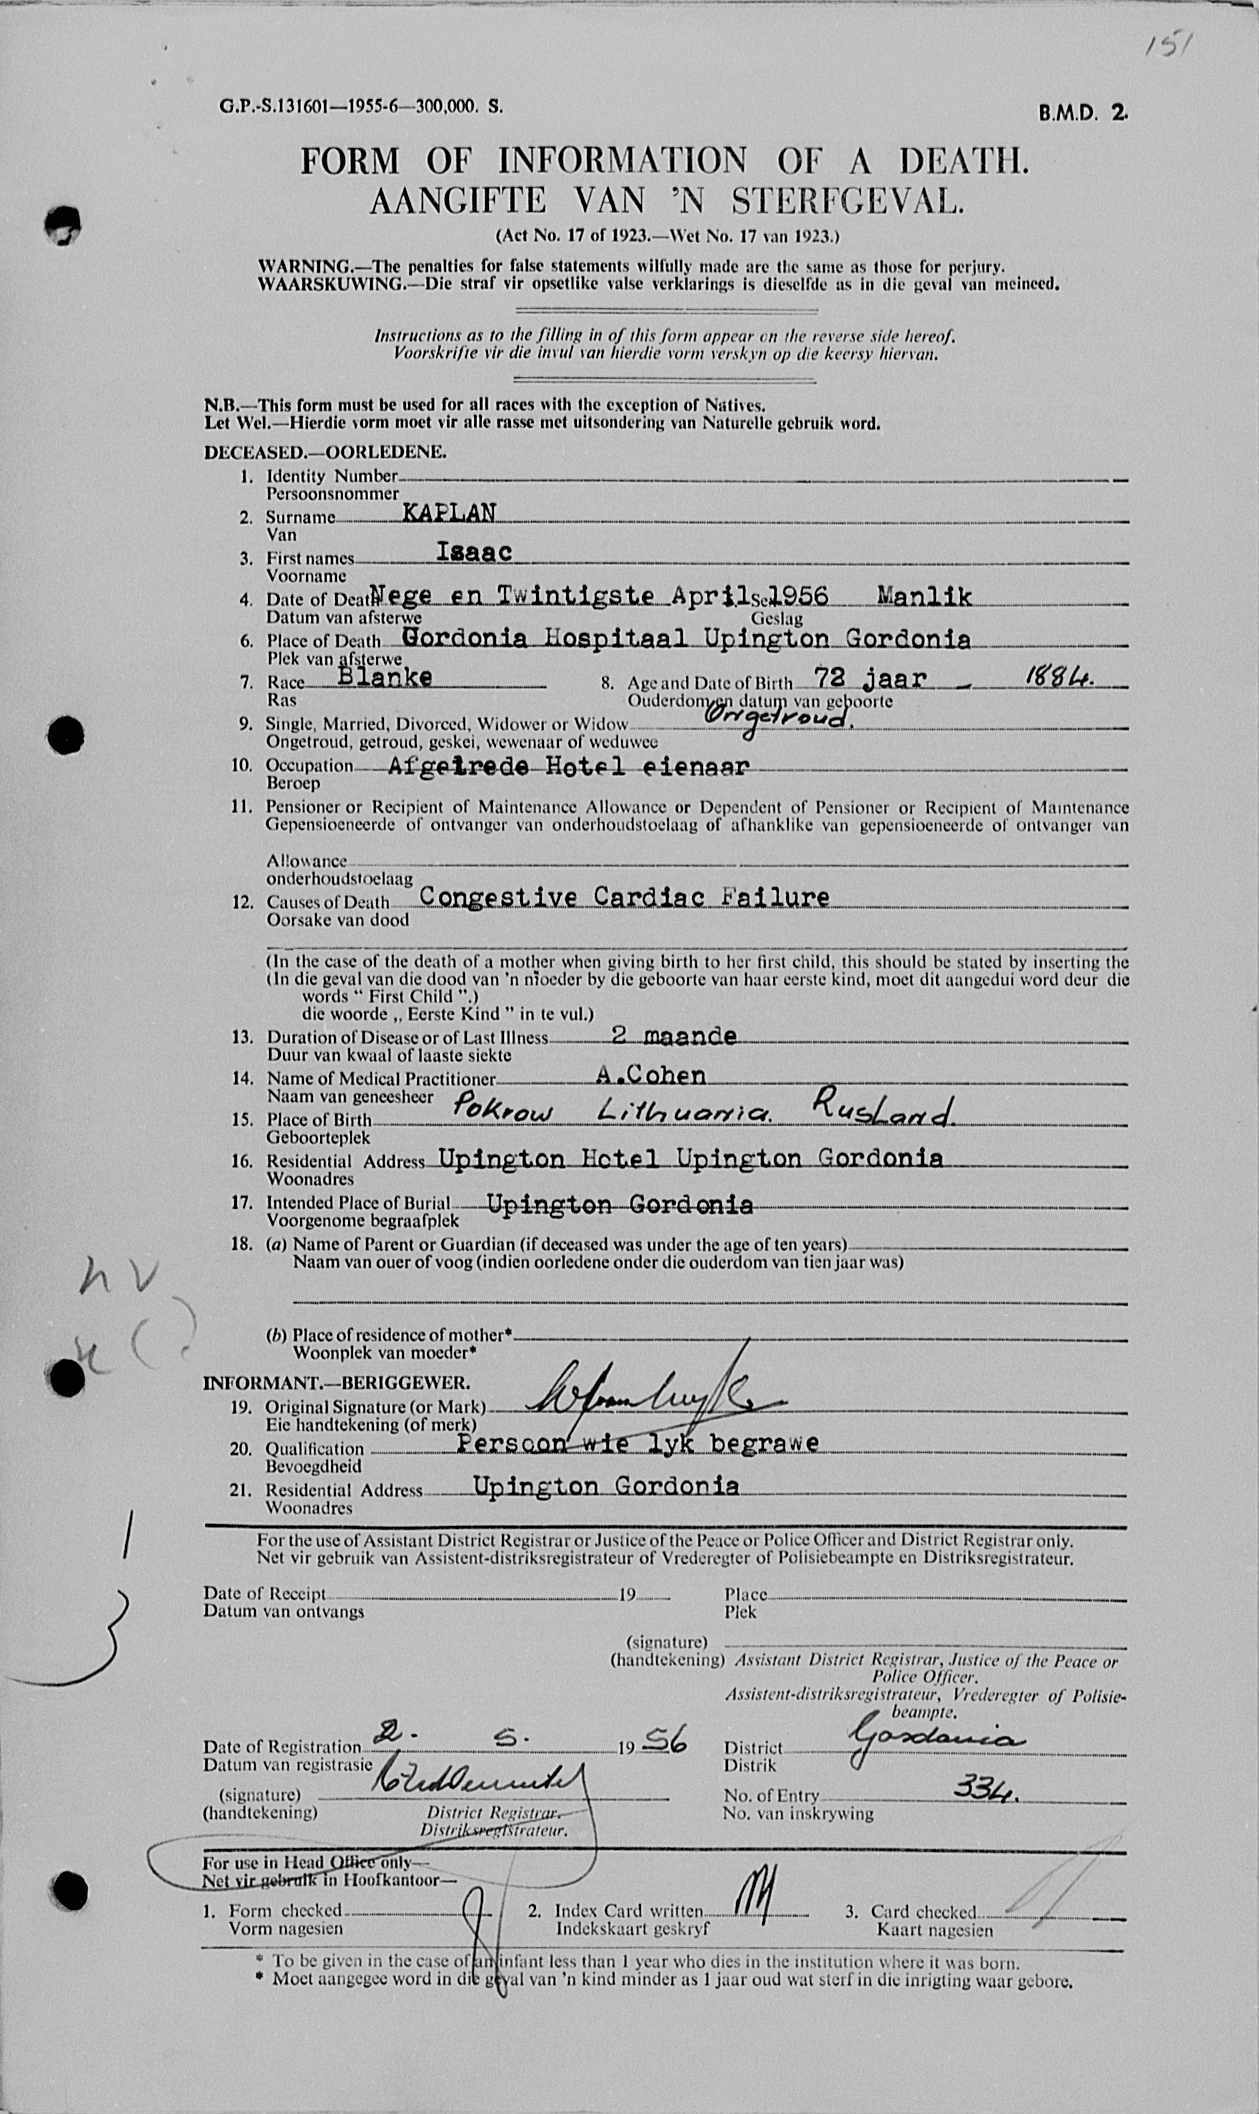 151
G.P.-S.131601—1955-6—300,000. S.
B.M.D. 2.
FORM OF INFORMATION OF A DEATH.
AANGIFTE VAN 'N STERFGEVAL.
(Act No. 17 of 1923.—Wet No. 17 van 1923.)
WARNING.—The penalties for false statements wilfully made are the same as those for perjury.
WAARSKUWING.—Die straf vir opsetlike valse verklarings is dieselfde as in die geval van meineed.
Instructions as to the filling in of this form appear on the reverse side hereof.
Voorskrifte vir die invul van hierdie vorm verskyn op die keersy hiervan.
N.B.—This form must be used for all races with the exception of Natives.
Let Wel.—Hierdie vorm moet vir alle rasse met uitsondering van Naturelle gebruik word.
DECEASED.—OORLEDENE.
1. Identity Number
Persoonsnommer
2. Surname KAPLAN
Van
3. First names Isaac
Voorname
4. Date of Death Nege en Twintigste April 1956 Manlik
Datum van afsterwe Geslag
6. Place of Death Gordonia Hospitaal Upington Gordonia
Plek van afsterwe
7. Race Blanke 8. Age and Date of Birth 72 jaar - 1884.
Ras Ouderdom en datum van geboorte
9. Single, Married, Divorced, Widower or Widow Ongetroud.
Ongetroud, getroud, geskei, wewenaar of weduwee
10. Occupation Afgetrede Hotel eienaar
Beroep
11. Pensioner or Recipient of Maintenance Allowance or Dependent of Pensioner or Recipient of Maintenance
Gepensioeneerde of ontvanger van onderhoudstoelaag of afhanklike van gepensioeneerde of ontvanger van
Allowance
onderhoudstoelaag
12. Causes of Death Congestive Cardiac Failure
Oorsake van dood
(In the case of the death of a mother when giving birth to her first child, this should be stated by inserting the
(In die geval van die dood van 'n moeder by die geboorte van haar eerste kind, moet dit aangedui word deur die
words " First Child ".)
die woorde ,, Eerste Kind " in te vul.)
13. Duration of Disease or of Last Illness 2 maande
Duur van kwaal of laaste siekte
14. Name of Medical Practitioner A.Cohen
Naam van geneesheer
15. Place of Birth Pokrow Lithuania. Rusland.
Geboorteplek
16. Residential Address Upington Hotel Upington Gordonia
Woonadres
17. Intended Place of Burial Upington Gordonia
Voorgenome begraafplek
18. (a) Name of Parent or Guardian (if deceased was under the age of ten years)
Naam van ouer of voog (indien oorledene onder die ouderdom van tien jaar was)
(b) Place of residence of mother*
Woonplek van moeder*
INFORMANT.—BERIGGEWER.
19. Original Signature (or Mark)
Eie handtekening (of merk)
20. Qualification Persoon wie lyk begrawe
Bevoegdheid
21. Residential Address Upington Gordonia
Woonadres
For the use of Assistant District Registrar or Justice of the Peace or Police Officer and District Registrar only.
Net vir gebruik van Assistent-distriksregistrateur of Vrederegter of Polisiebeampte en Distriksregistrateur.
Date of Receipt 19 Place
Datum van ontvangs Plek
(signature)
(handtekening) Assistant District Registrar, Justice of the Peace or
Police Officer.
Assistent-distriksregistrateur, Vrederegter of Polisie-
beampte.
Date of Registration 2. 5. 1956 District Gordonia
Datum van registrasie Distrik
(signature) No. of Entry 334.
(handtekening) District Registrar. No. van inskrywing
Distriksregistrateur.
For use in Head Office only—
Net vir gebruik in Hoofkantoor—
1. Form checked 2. Index Card written 3. Card checked
Vorm nagesien Indekskaart geskryf Kaart nagesien
* To be given in the case of an infant less than 1 year who dies in the institution where it was born.
* Moet aangegee word in die geval van 'n kind minder as 1 jaar oud wat sterf in die inrigting waar gebore.
1
3